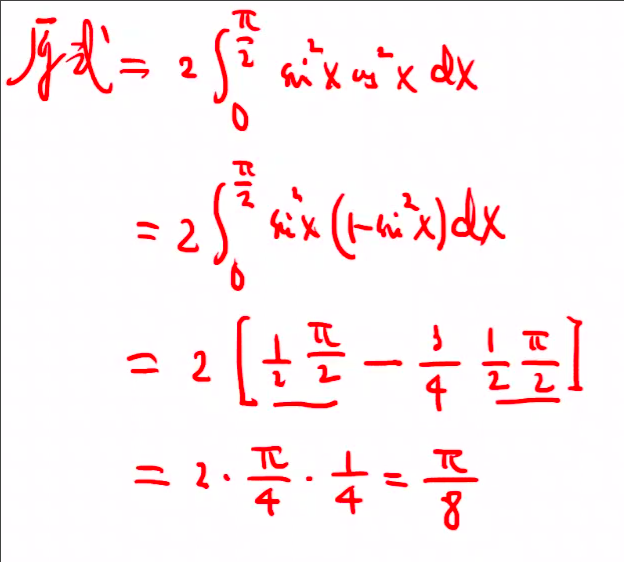 原式 = 2∫₀^(π/2) sin²x cos²x dx
= 2∫₀^(π/2) sin²x (1-sin²x) dx
= 2 [ 1/2 π/2 - 3/4 1/2 π/2 ]
= 2 · π/4 · 1/4 = π/8